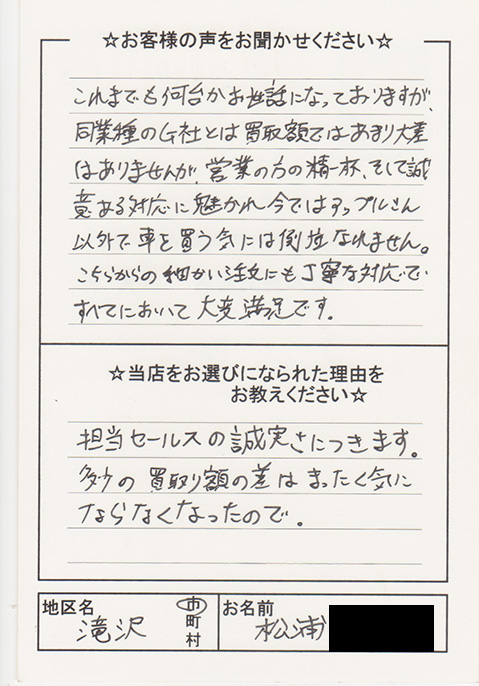 ☆お客様の声をお聞かせください☆
これまでも何台かお世話になっておりますが、
同業種のG社とは買取額ではあまり大差
はありませんが、営業の方の精一杯、そして誠
意ある対応に魅かれ今ではアップルさん
以外で車を買う気には到底なれません。
こちらからの細かい注文にも丁寧な対応で
すべてにおいて大変満足です。
☆当店をお選びになられた理由を
お教えください☆
担当セールスの誠実さにつきます。
多少の買取り額の差はまったく気に
ならなくなったので。
地区名 滝沢 市町村 お名前 松浦